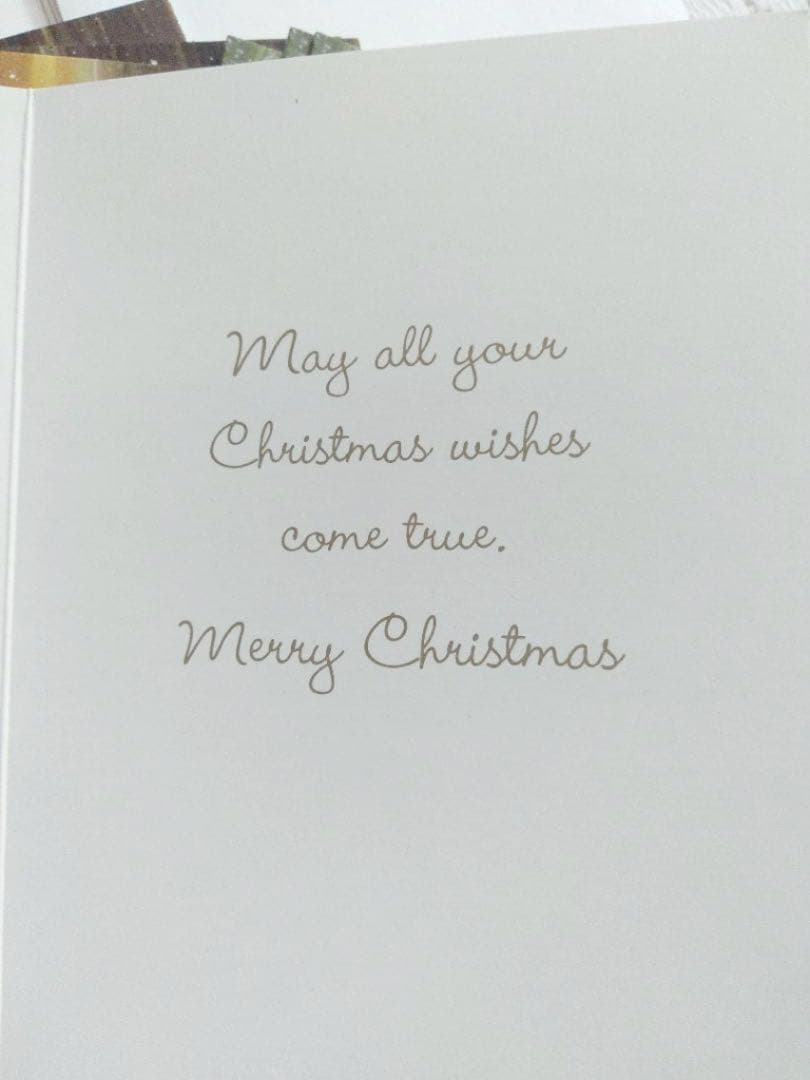 May all your
Christmas wishes
come true.
Merry Christmas